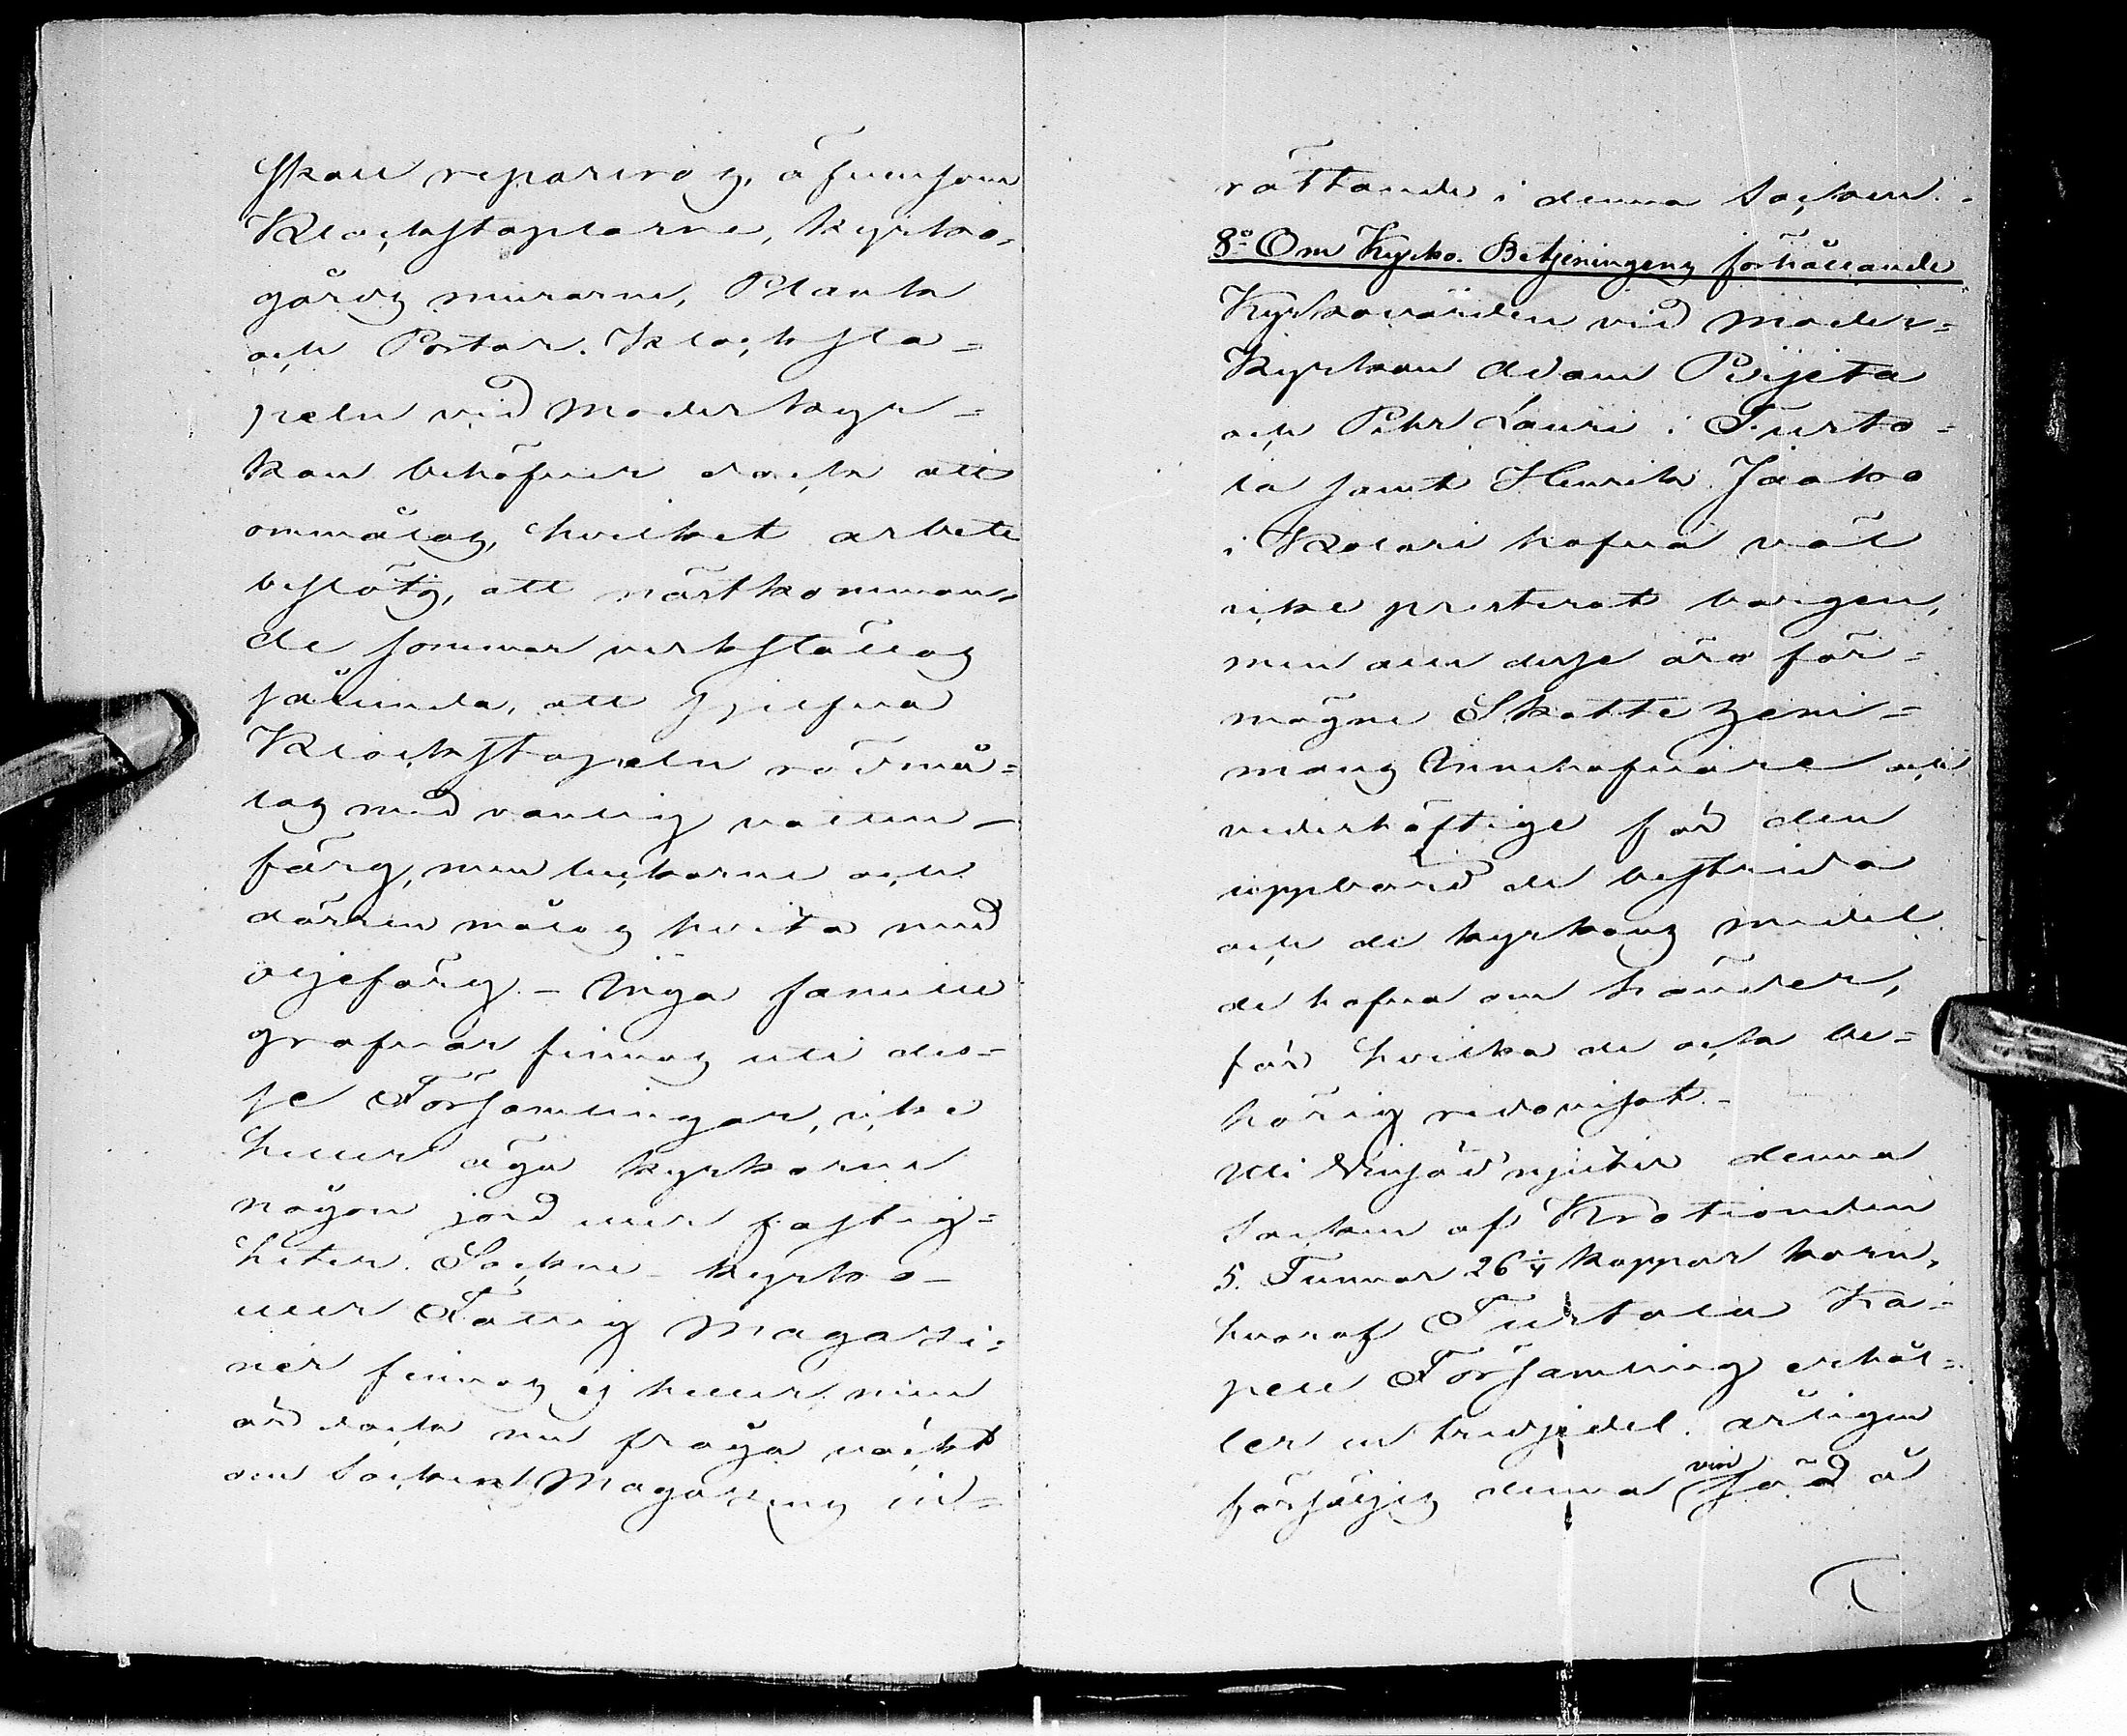 skall repareras, äfvensom
Klockstaplarne, kyrko-
gårds murarne, Plank
och Portar. Klocksta-
peln vid Moderkyr-
kan behöfver dock att
ommålas, hvilket arbete
beslöts, att nästkomman-
de sommar verkställas
sålunda, att sjelfva
Klockstapeln rödmå-
las med vanlig vatten-
färg, men luckorne och
dörren målas hvita med
oljefärg. – Inga familie
grafvar finnas uti des-
se Församlingar, icke
heller äga kyrkorne
någon jord eller fastig-
heter. Sockne- kyrko-
eller Fattig Magazi-
ner finnas ej heller, men
är dock nu fråga väckt
om Sockne Magazins in-
rättande i denna Socken.
8º Om Kyrko-Betjeningens förhållande
Kyrkovärden vid Moder-
kyrkan Adam Pijeta
och Pehr Lauri i Turto-
la samt Henrik Jaako
i Kolari hafva väl
icke presterat borgen,
men alla desse äro för-
mögne Skattehemi-
mans Innehafvare och
vederhäftige för den
uppbörd de bestrida
och de kyrkans medel
de hafva om händer,
för hvilka de ock be-
hörig redovisat. –
Till Vinsäd njuter denna
Socken af Krotionden
5. Tunnor 26 1/4 kappor korn,
hvaraf Turtola Ka-
pell Församling erhål-
ler en tredjedel. årligen
försäljes denna vin säd å